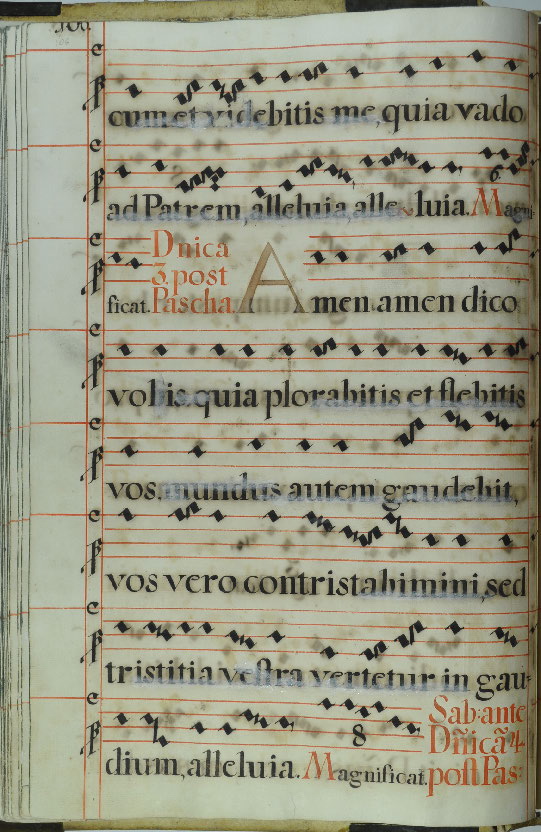 106.
cum et videbitis me, quia vado
ad Patrem, alleluia, alleluia. Magni
Dnica
ficat. 3. post
Pascha. Amen amen dico
vobis quia plorabitis et flebitis
vos, mundus autem gaudebit,
vos vero contristabimini, sed
tristitia vestra vertetur in gau-
Sab: ante
dium, alleluia. Magnificat. Dñicã 4.
post Pas: